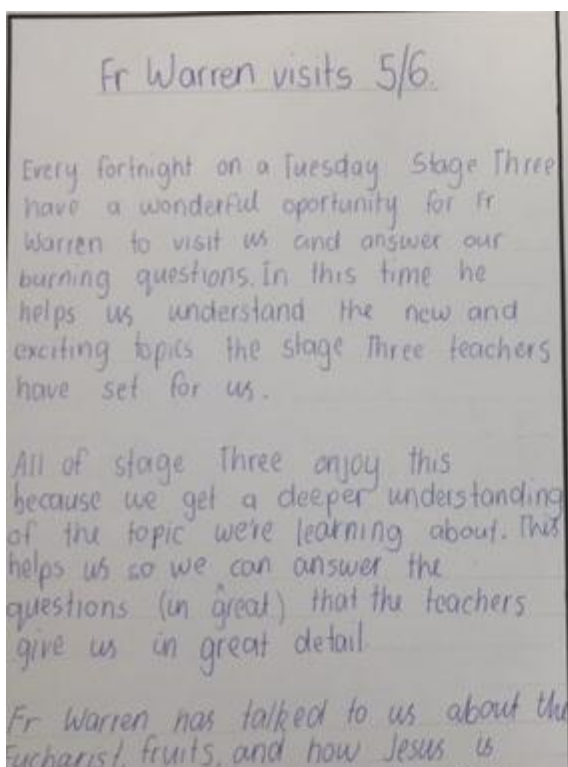 Fr Warren visits 5/6.
Every fortnight on a Tuesday Stage Three
have a wonderful oportunity for Fr
Warren to visit us and answer our
burning questions. In this time he
helps us understand the new and
exciting topics the stage Three teachers
have set for us.
All of stage Three enjoy this
because we get a deeper understanding
of the topic we're learning about. This
helps us so we can answer the
questions (in great) that the teachers
give us in great detail.
Fr Warren has talked to us about the
Eucharist, fruits, and how Jesus is